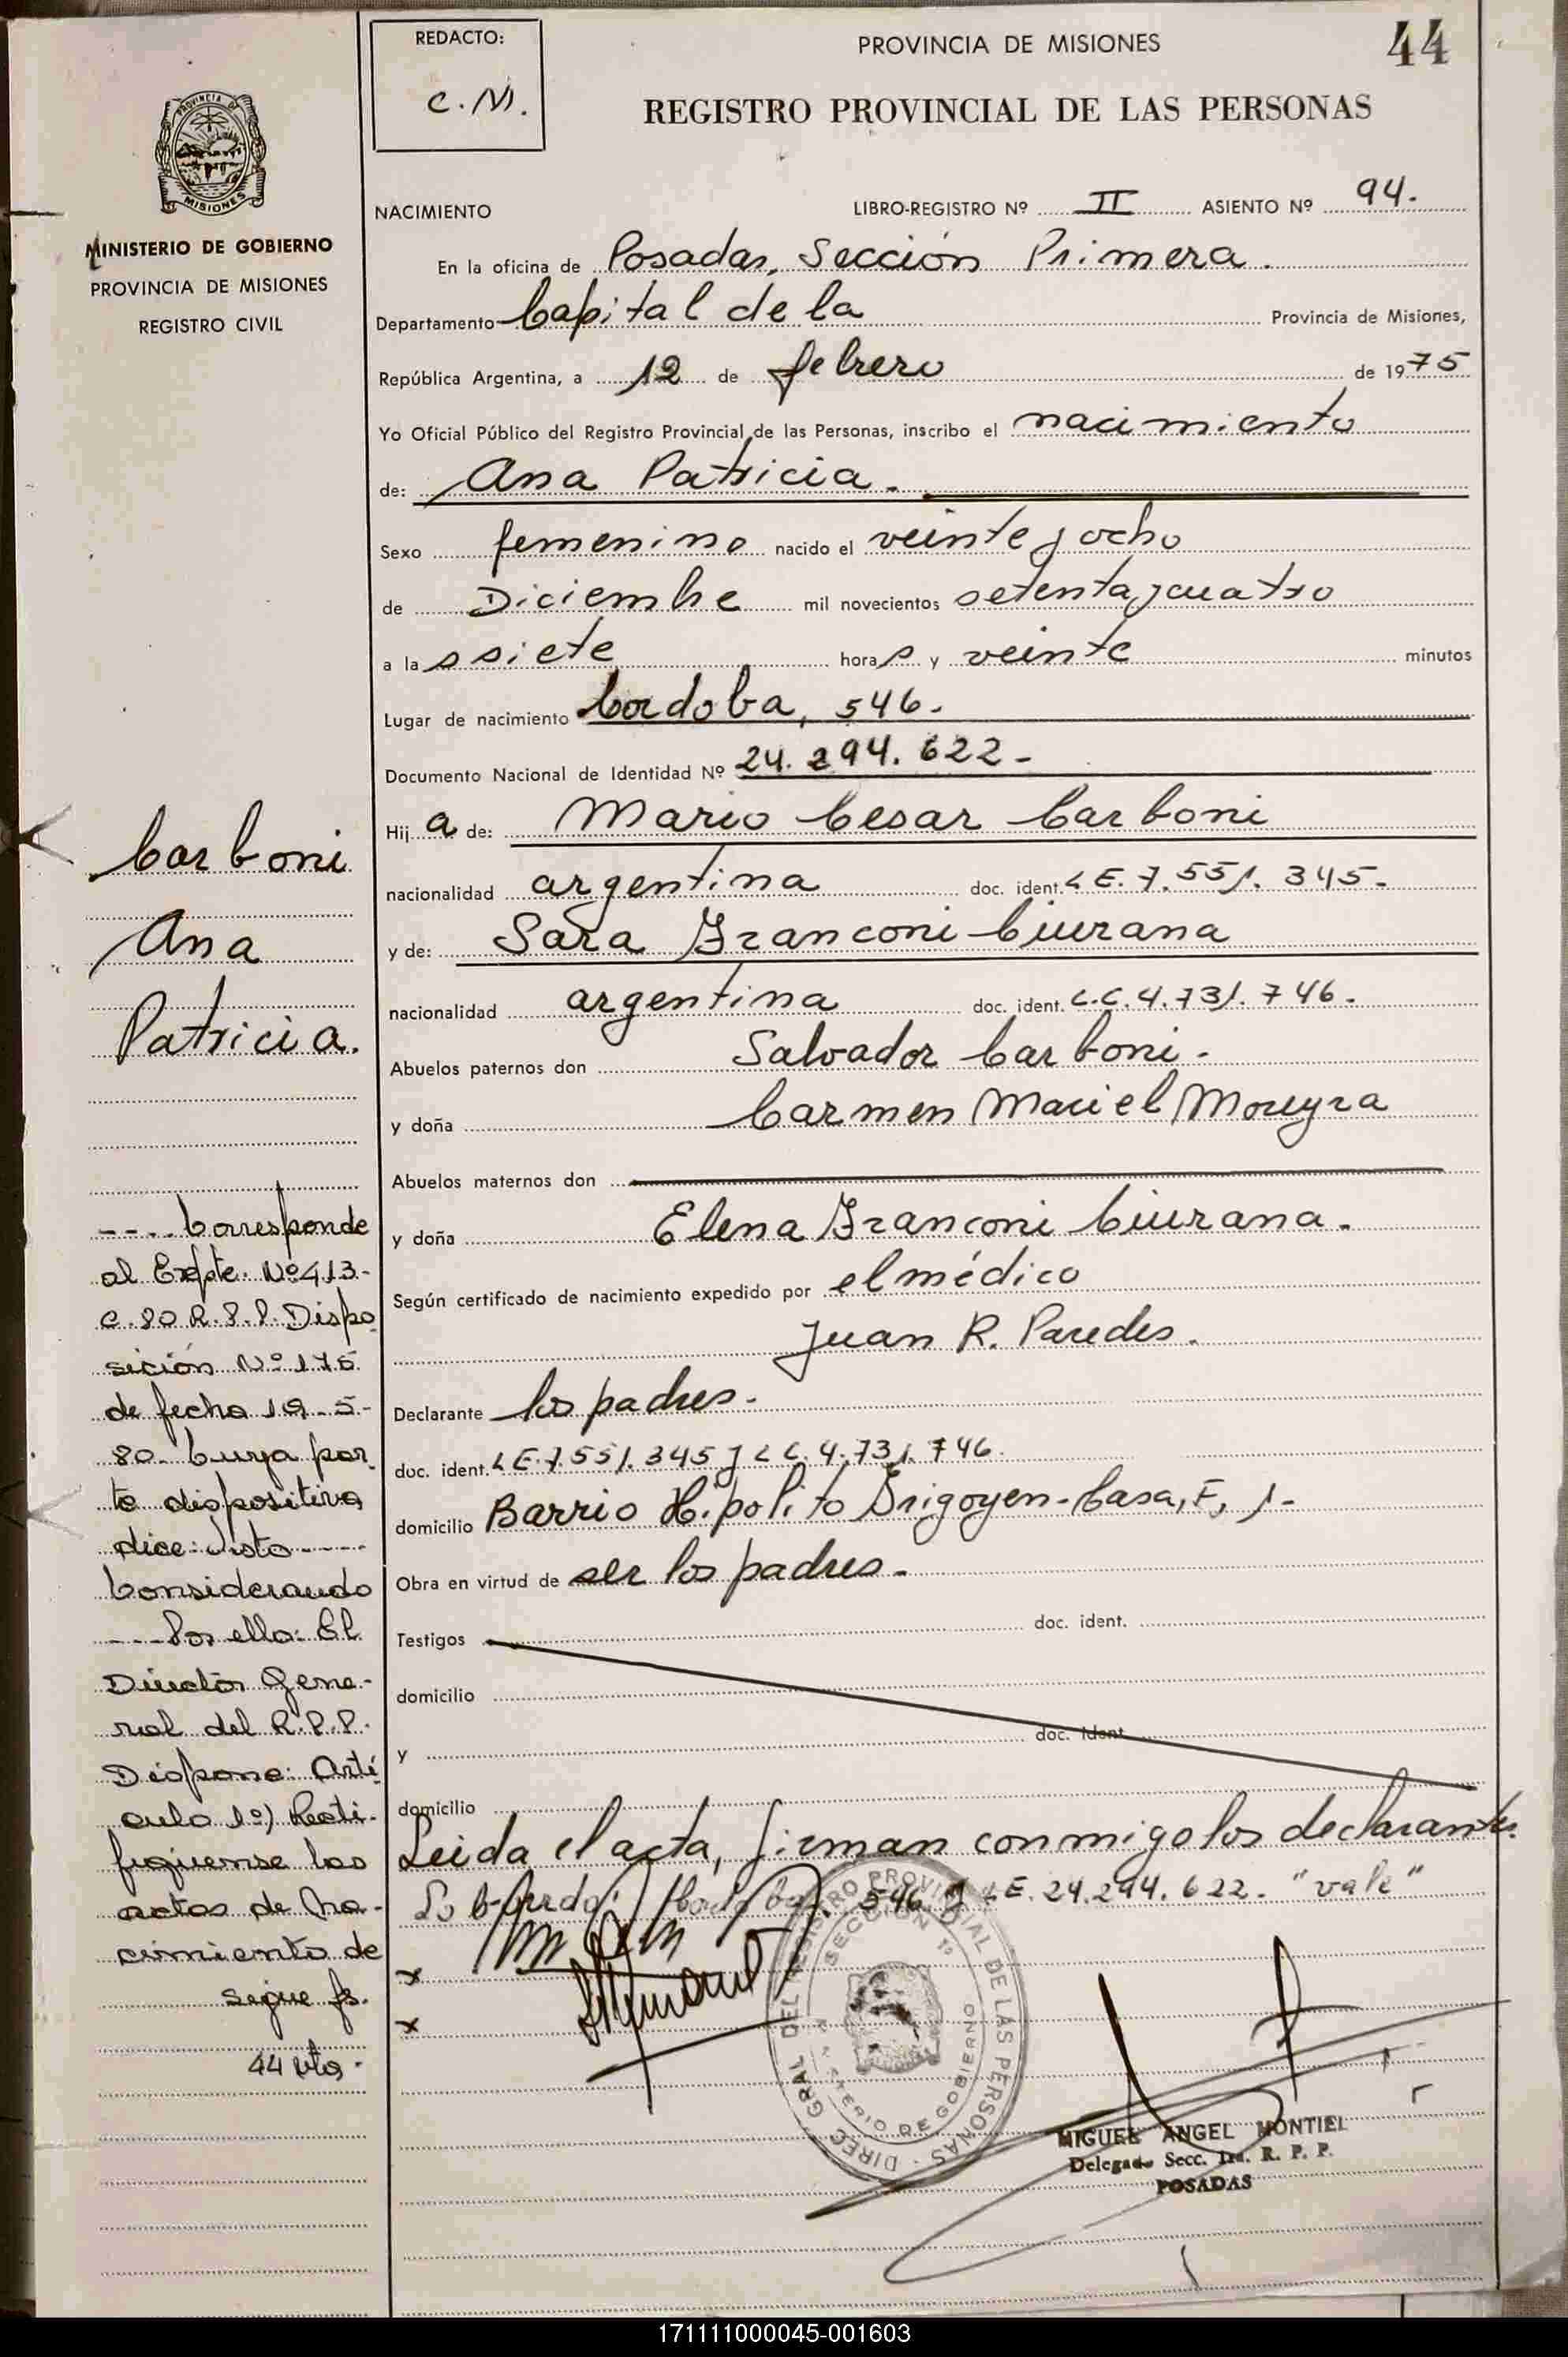 REDACTO:
C. M.
PROVINCIA DE MISIONES
44
REGISTRO PROVINCIAL DE LAS PERSONAS
PROVINCIA DE
MISIONES
MINISTERIO DE GOBIERNO
PROVINCIA DE MISIONES
REGISTRO CIVIL
NACIMIENTO
LIBRO-REGISTRO Nº II ASIENTO Nº 94.
En la oficina de Posadas, Sección Primera.
Departamento Capital de la Provincia de Misiones,
República Argentina, a 12 de febrero de 1975
Yo Oficial Público del Registro Provincial de las Personas, inscribo el nacimiento
de: Ana Patricia.
Sexo femenino nacido el veinte y ocho
de Diciembre mil novecientos setenta y cuatro
a la s siete hora s y veinte minutos
Lugar de nacimiento Cordoba, 546.
Documento Nacional de Identidad Nº 24.294.622-
Hij a de: Mario Cesar Carboni
nacionalidad argentina doc. ident. L E. 7.551.345-
y de: Sara Franconi Ciurana
nacionalidad argentina doc. ident. L.C. 4.731.746.
Abuelos paternos don Salvador Carboni.
y doña Carmen Maciel Moreyra
Abuelos maternos don
y doña Elena Franconi Ciurana.
Según certificado de nacimiento expedido por el médico
Juan R. Paredes.
Declarante los padres.
doc. ident. L E. 7.551.345 y L C. 4.731.746.
domicilio Barrio Hipolito Irigoyen-Casa, F, 1-
Obra en virtud de ser los padres.
Testigos doc. ident.
domicilio
y doc. ident.
domicilio
Leida el acta, firman conmigo los declarantes.
546 y L E. 24.294.622. "vale"
x
x
DIREC. GRAL. DEL REGISTRO PROVINCIAL DE LAS PERSONAS
SECCION 1º
MINISTERIO DE GOBIERNO
MIGUEL ANGEL MONTIEL
Delegado Secc. 1ra. R. P. P.
POSADAS
Carboni
Ana
Patricia.
---- Corresponde
al Expte. Nº 413-
C. 80 R.P.P. Dispo
sición Nº 175
de fecha 19-5-
80. Cuya par
te dispositiva
dice: Visto----
Considerando
---- Por ello: El
Director Gene-
ral del R.P.P.
Dispone: Artí
culo 1º) Recti-
fiquense las
actas de Na-
cimiento de
sigue fs.
44 vta.
171111000045-001603